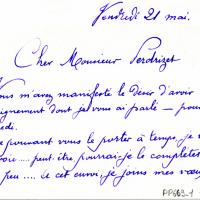 Vendredi 21 mai.
Cher Monsieur Perdrizet
m'avez manifesté le désir d'avoir
dont je vous ai parlé — pour
pouvant vous le porter à temps, je v
peut-être pourrai-je le compléter
peu .... À cet envoi, je joins mes vœux
PP669_1